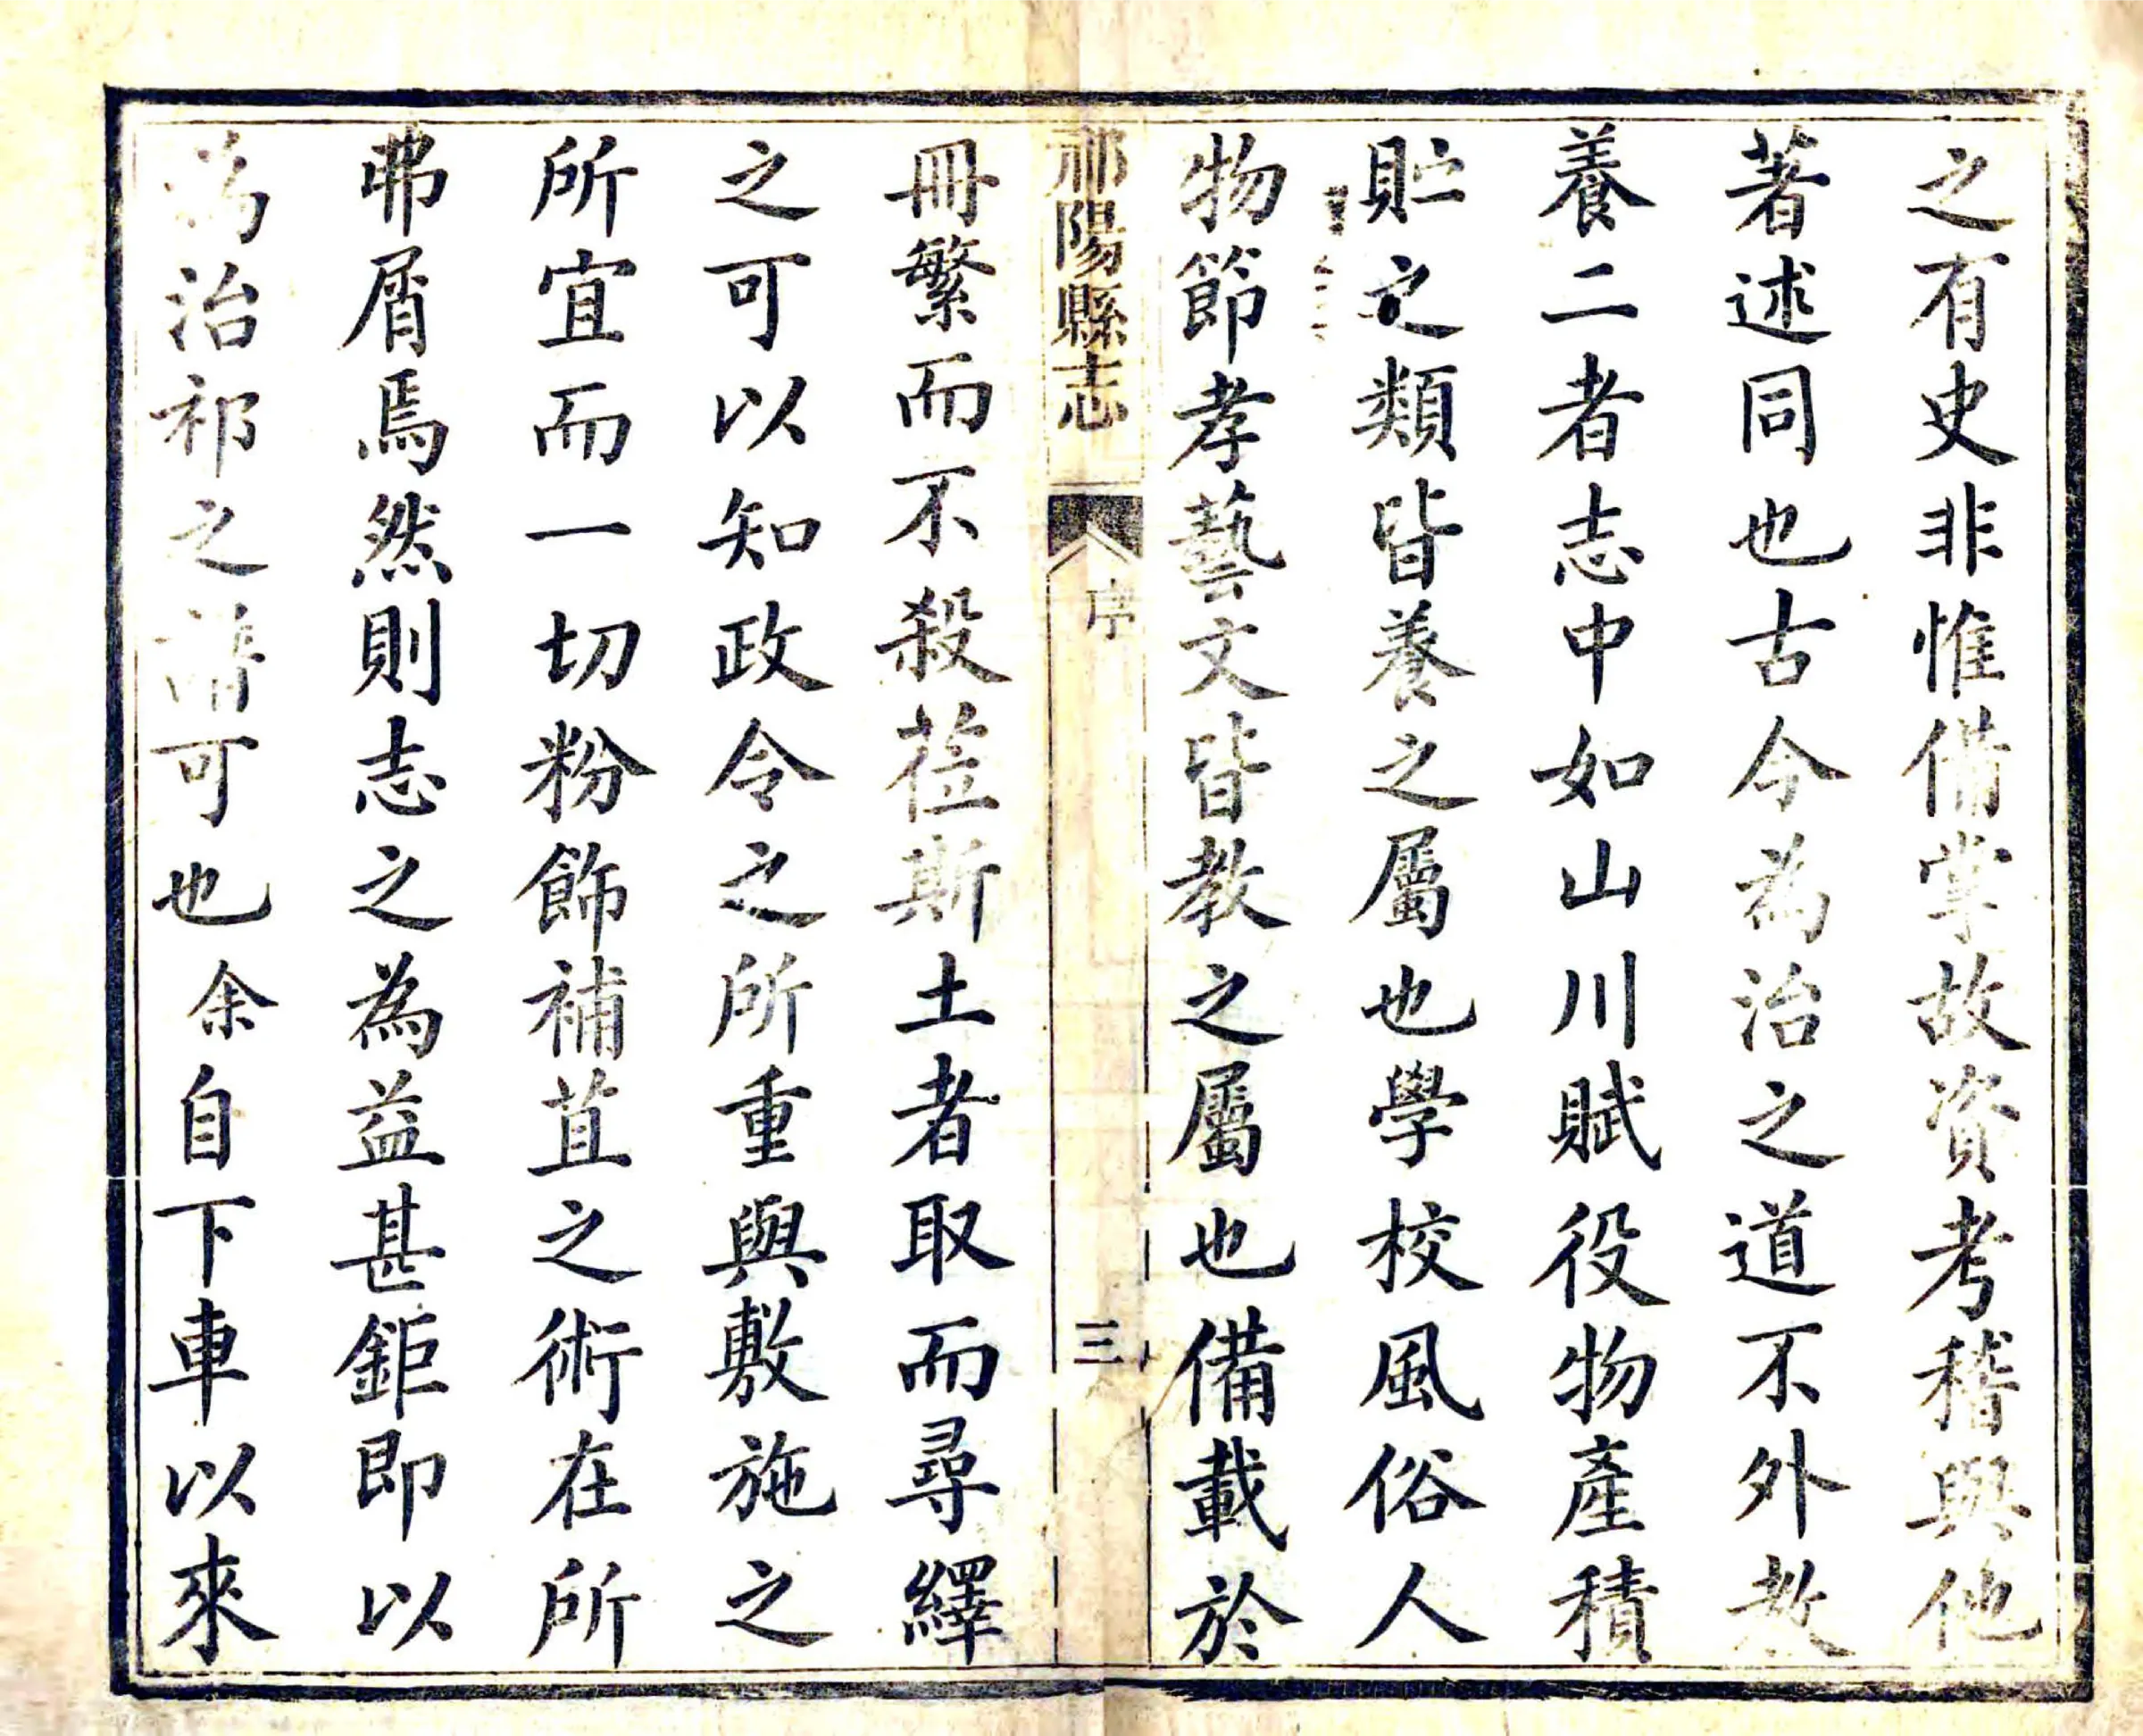 之有史非惟備掌故資考稽與他
著述同也古今為治之道不外教
養二者志中如山川賦役物產積
貯之類皆養之屬也學校風俗人
物節孝藝文皆教之屬也備載於
祁陽縣志
序
三
冊繁而不殺莅斯土者取而尋繹
之可以知政令之所重與敷施之
所宜而一切粉飾補苴之術在所
弗屑焉然則志之為益甚鉅即以
為治祁之譜可也余自下車以來